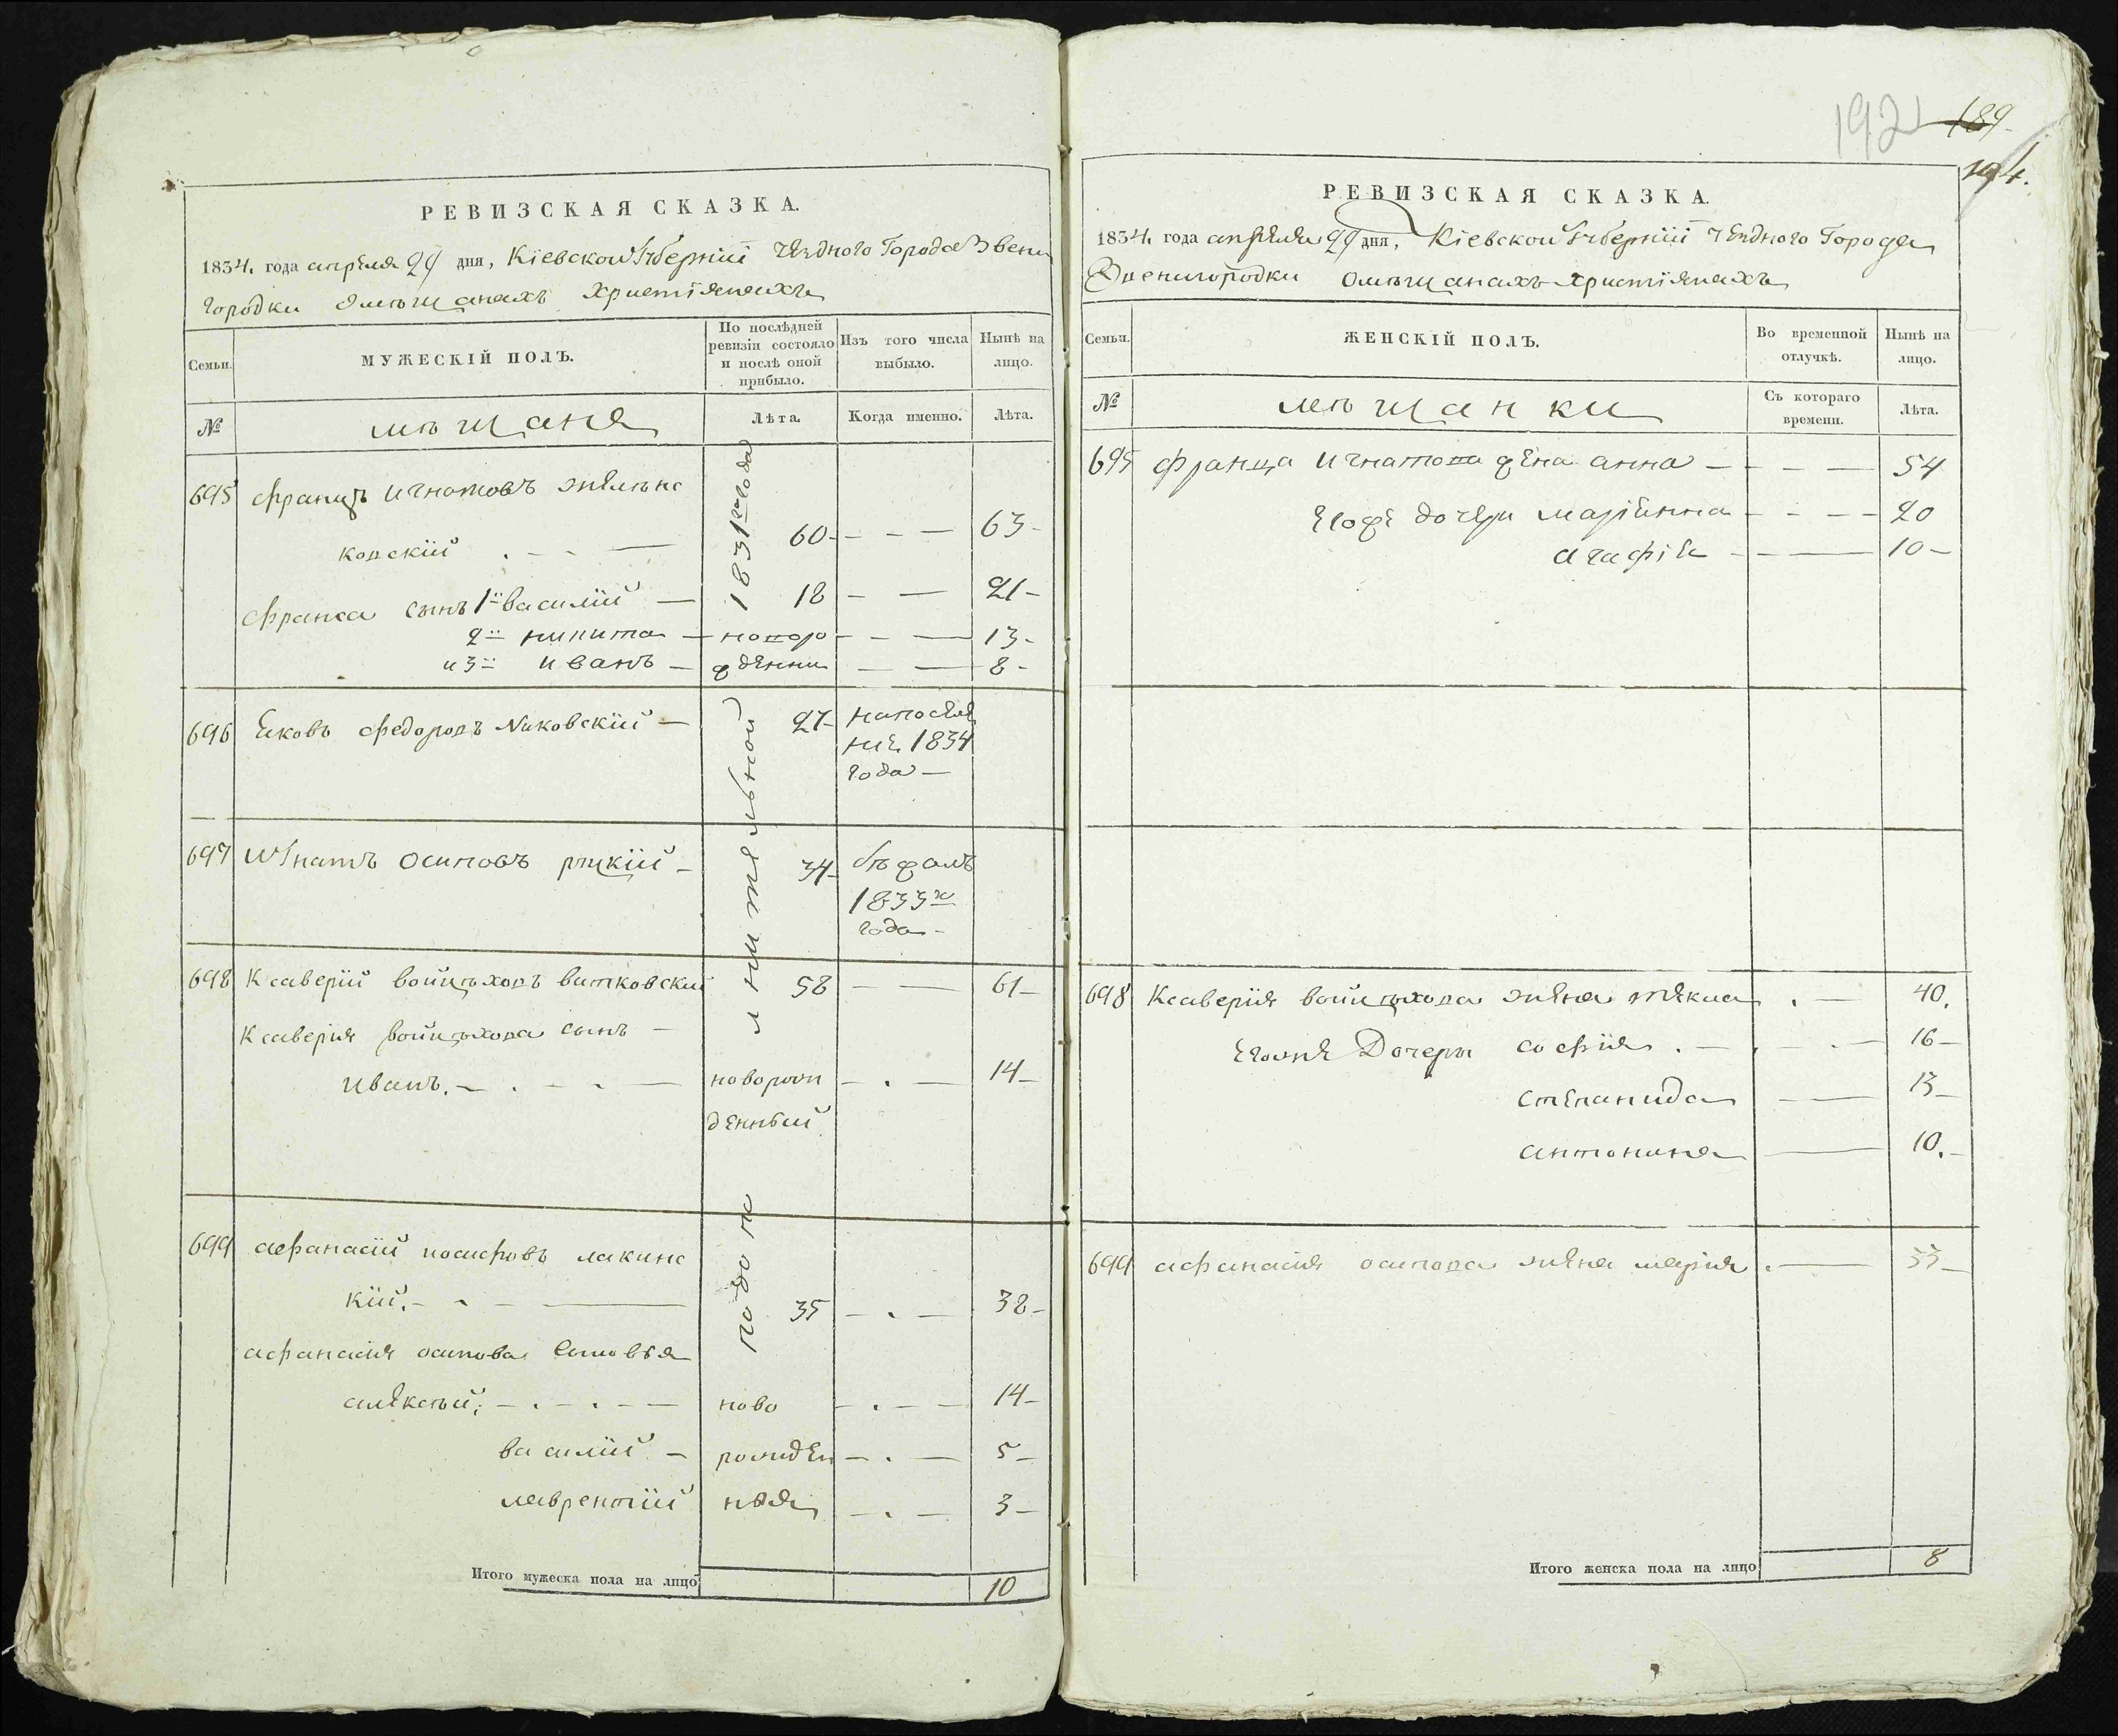 192 189
194.
РЕВИЗСКАЯ СКАЗКА.
1834. года апреля 29 дня, Кіевской Губерніи Уезднаго Города Звени
городки Омещанахъ Христіянахъ
Семьи.
МУЖЕСКІЙ ПОЛЪ.
По послѣдней ревизіи состояло и послѣ оной прибыло.
Изъ того числа выбыло.
Нынѣ на лицо.
№
мѣщане
Лѣта.
Когда именно.
Лѣта.
подополнительной 1831го года
695 Францъ Игнатовъ
ковскій . - - — 60 - - — 63 -
Франса сынъ 1й Василій — 18 — — 21 -
2й никита — новоро - - — 13 -
и 3й иванъ — жденни — — 8 -
696 Яковъ Федоровъ — 27 - напоселе
ние 1834
года —
697 Игнатъ Осиповъ - 34 - бѣжалъ
1833го
года -
698 Ксаверій войцѣховъ витковскій 58 — — 61 -
Ксаверія войцѣхова сынъ —
Иванъ. - . - - — новорож - . — 14 -
денный
699 афанасій иосифовъ лакинс
кій. - - - — 35 - . — 38 -
афанасія осипова Сыновья
алексѣй: - . - . - - ново - . - - 14 -
василій. - рожден - . — 5 -
лаврентій ныя - . — 3 -
Итого мужеска пола на лицо 10
РЕВИЗСКАЯ СКАЗКА.
1834. года апреля 29 дня, Кіевской Губерніи Уезднаго Города
Звенигородки Омещанахъ Христіянахъ
Семьи.
ЖЕНСКІЙ ПОЛЪ.
Во временной отлучкѣ.
Нынѣ на лицо.
№
мѣщанки
Съ котораго времени.
Лѣта.
695 Франца Игнатова жена анна - - — — 54
Егоже дочери маріянна - - - - 20
агафія - - — 10 -
698 Ксаверія войцѣхова жена текла . — 40.
Егоже Дочери софія . - . - . - 16 -
степанида — 13 -
антонина — 10. -
699 афанасія осипова жена марія . — 33 -
Итого женска пола на лицо 8